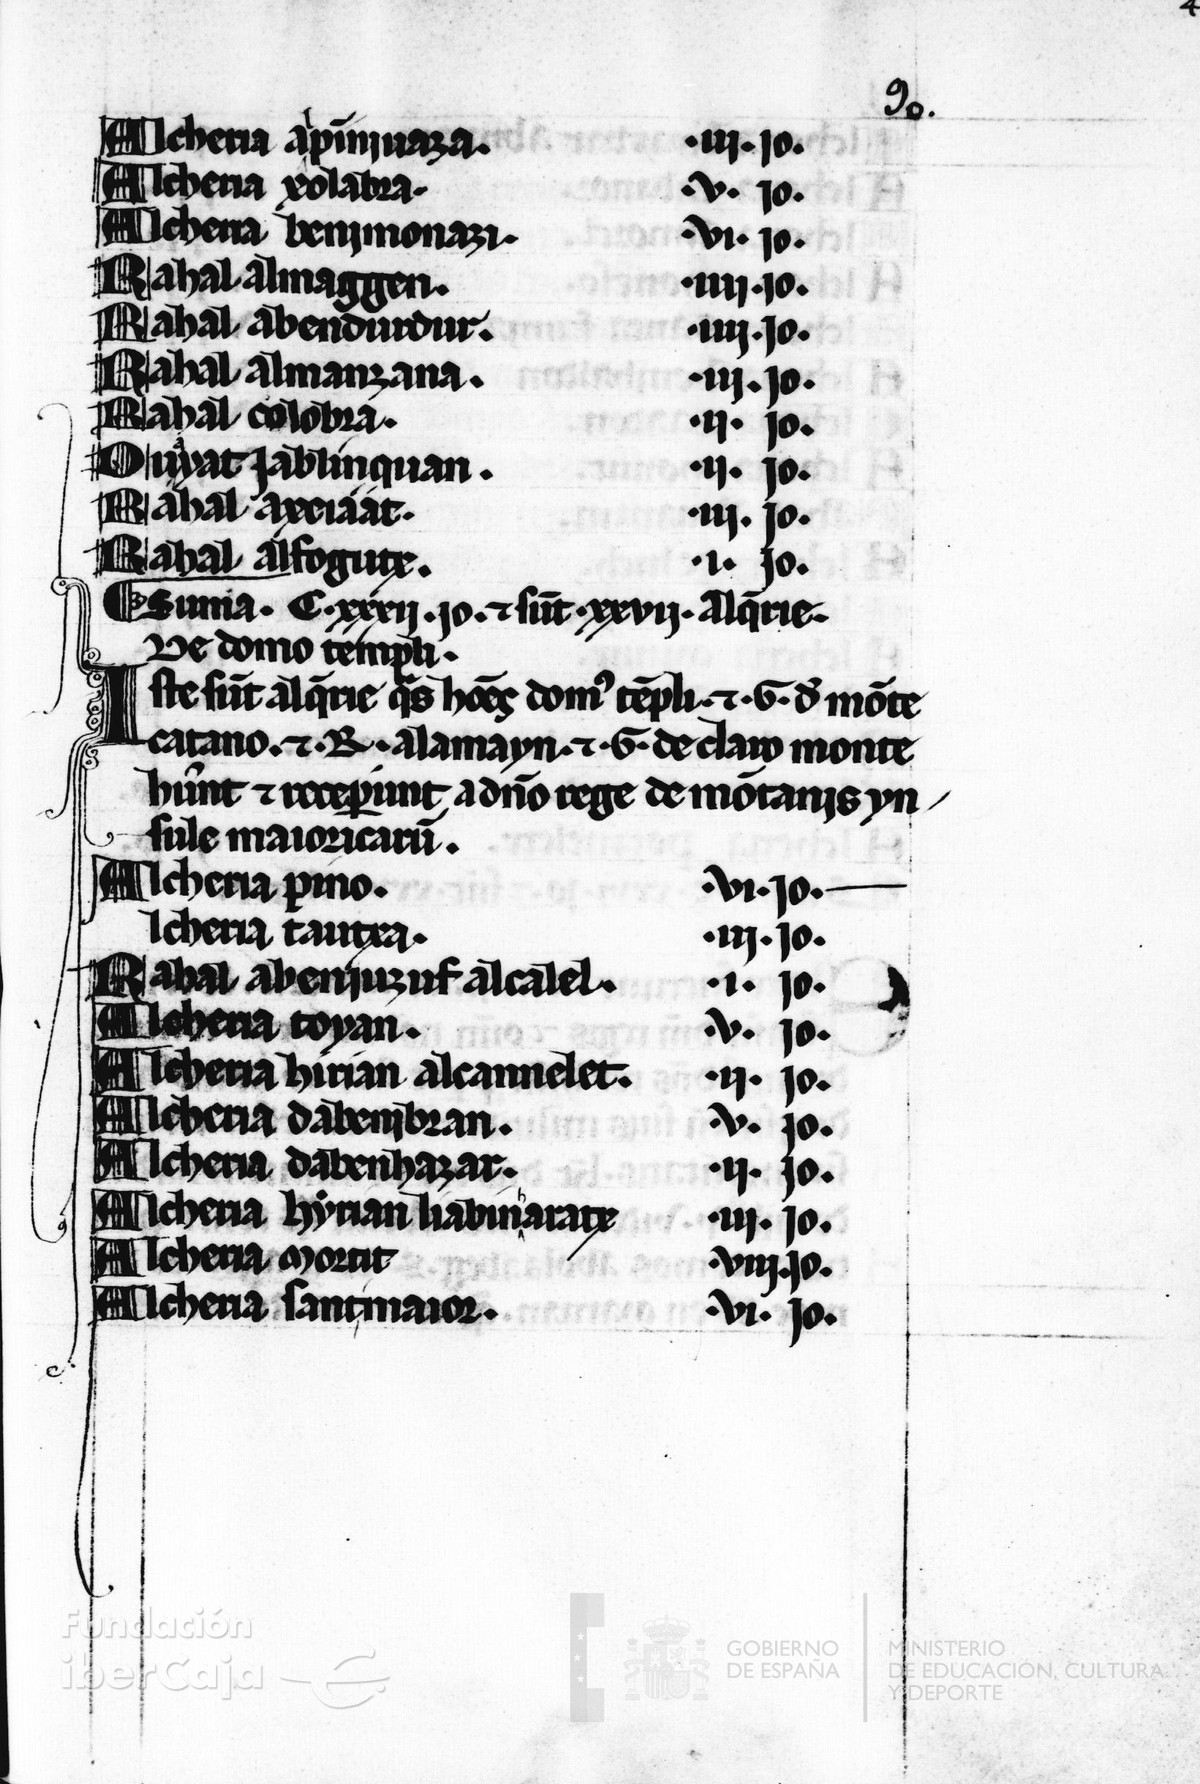 90.
Alcheria apiniuaza. .iii. jo.
Alcheria xolabra. .v. jo.
Alcheria benimonazi. .vi. jo.
Rahal almaggen. .iiij. jo.
Rahal abendurdur. .iiij. jo.
Rahal almanzana. .iij. jo.
Rahal colobra. .ij. jo.
Rahal axciáát. .iij. jo.
Rahal alfogutx. .i. jo.
Suma. C.xxxij. jo. ⁊ sūt .xxvij. alq̄rie.
De domo templi.
Iste sūt alq̄rie q̄s hōēs dom⁹ tēpli. ⁊ .G. đ mōte
catano. ⁊ .R. alamayn. ⁊ .G. de claro monte
hūnt ⁊ receperunt a dño rege de mōtanis yn
sule maioricarū.
Alcheria pino. .vi. jo.
lcheria tautxa. .iij. jo.
Rahal abeniuzuf alcalel. .i. jo.
Alcheria toyan. .v. jo.
Alcheria hirian alcannelet. .ij. jo.
Alcheria dabenibran. .v. jo.
Alcheria dabenhazar. .ij. jo.
Alcheria hyrian .iij. jo.
Alcheria mortit .viij. jo.
Alcheria santmaior. .vi. jo.
Fundación
iberCaja
GOBIERNO
DE ESPAÑA
MINISTERIO
DE EDUCACIÓN, CULTURA
Y DEPORTE